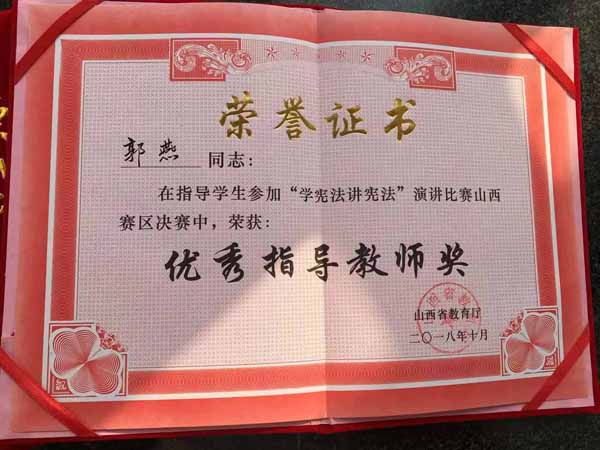 荣誉证书
郭燕 同志：
在指导学生参加“学宪法讲宪法”演讲比赛山西
赛区决赛中，荣获：
优秀指导教师奖
山西省教育厅
二〇一八年十月